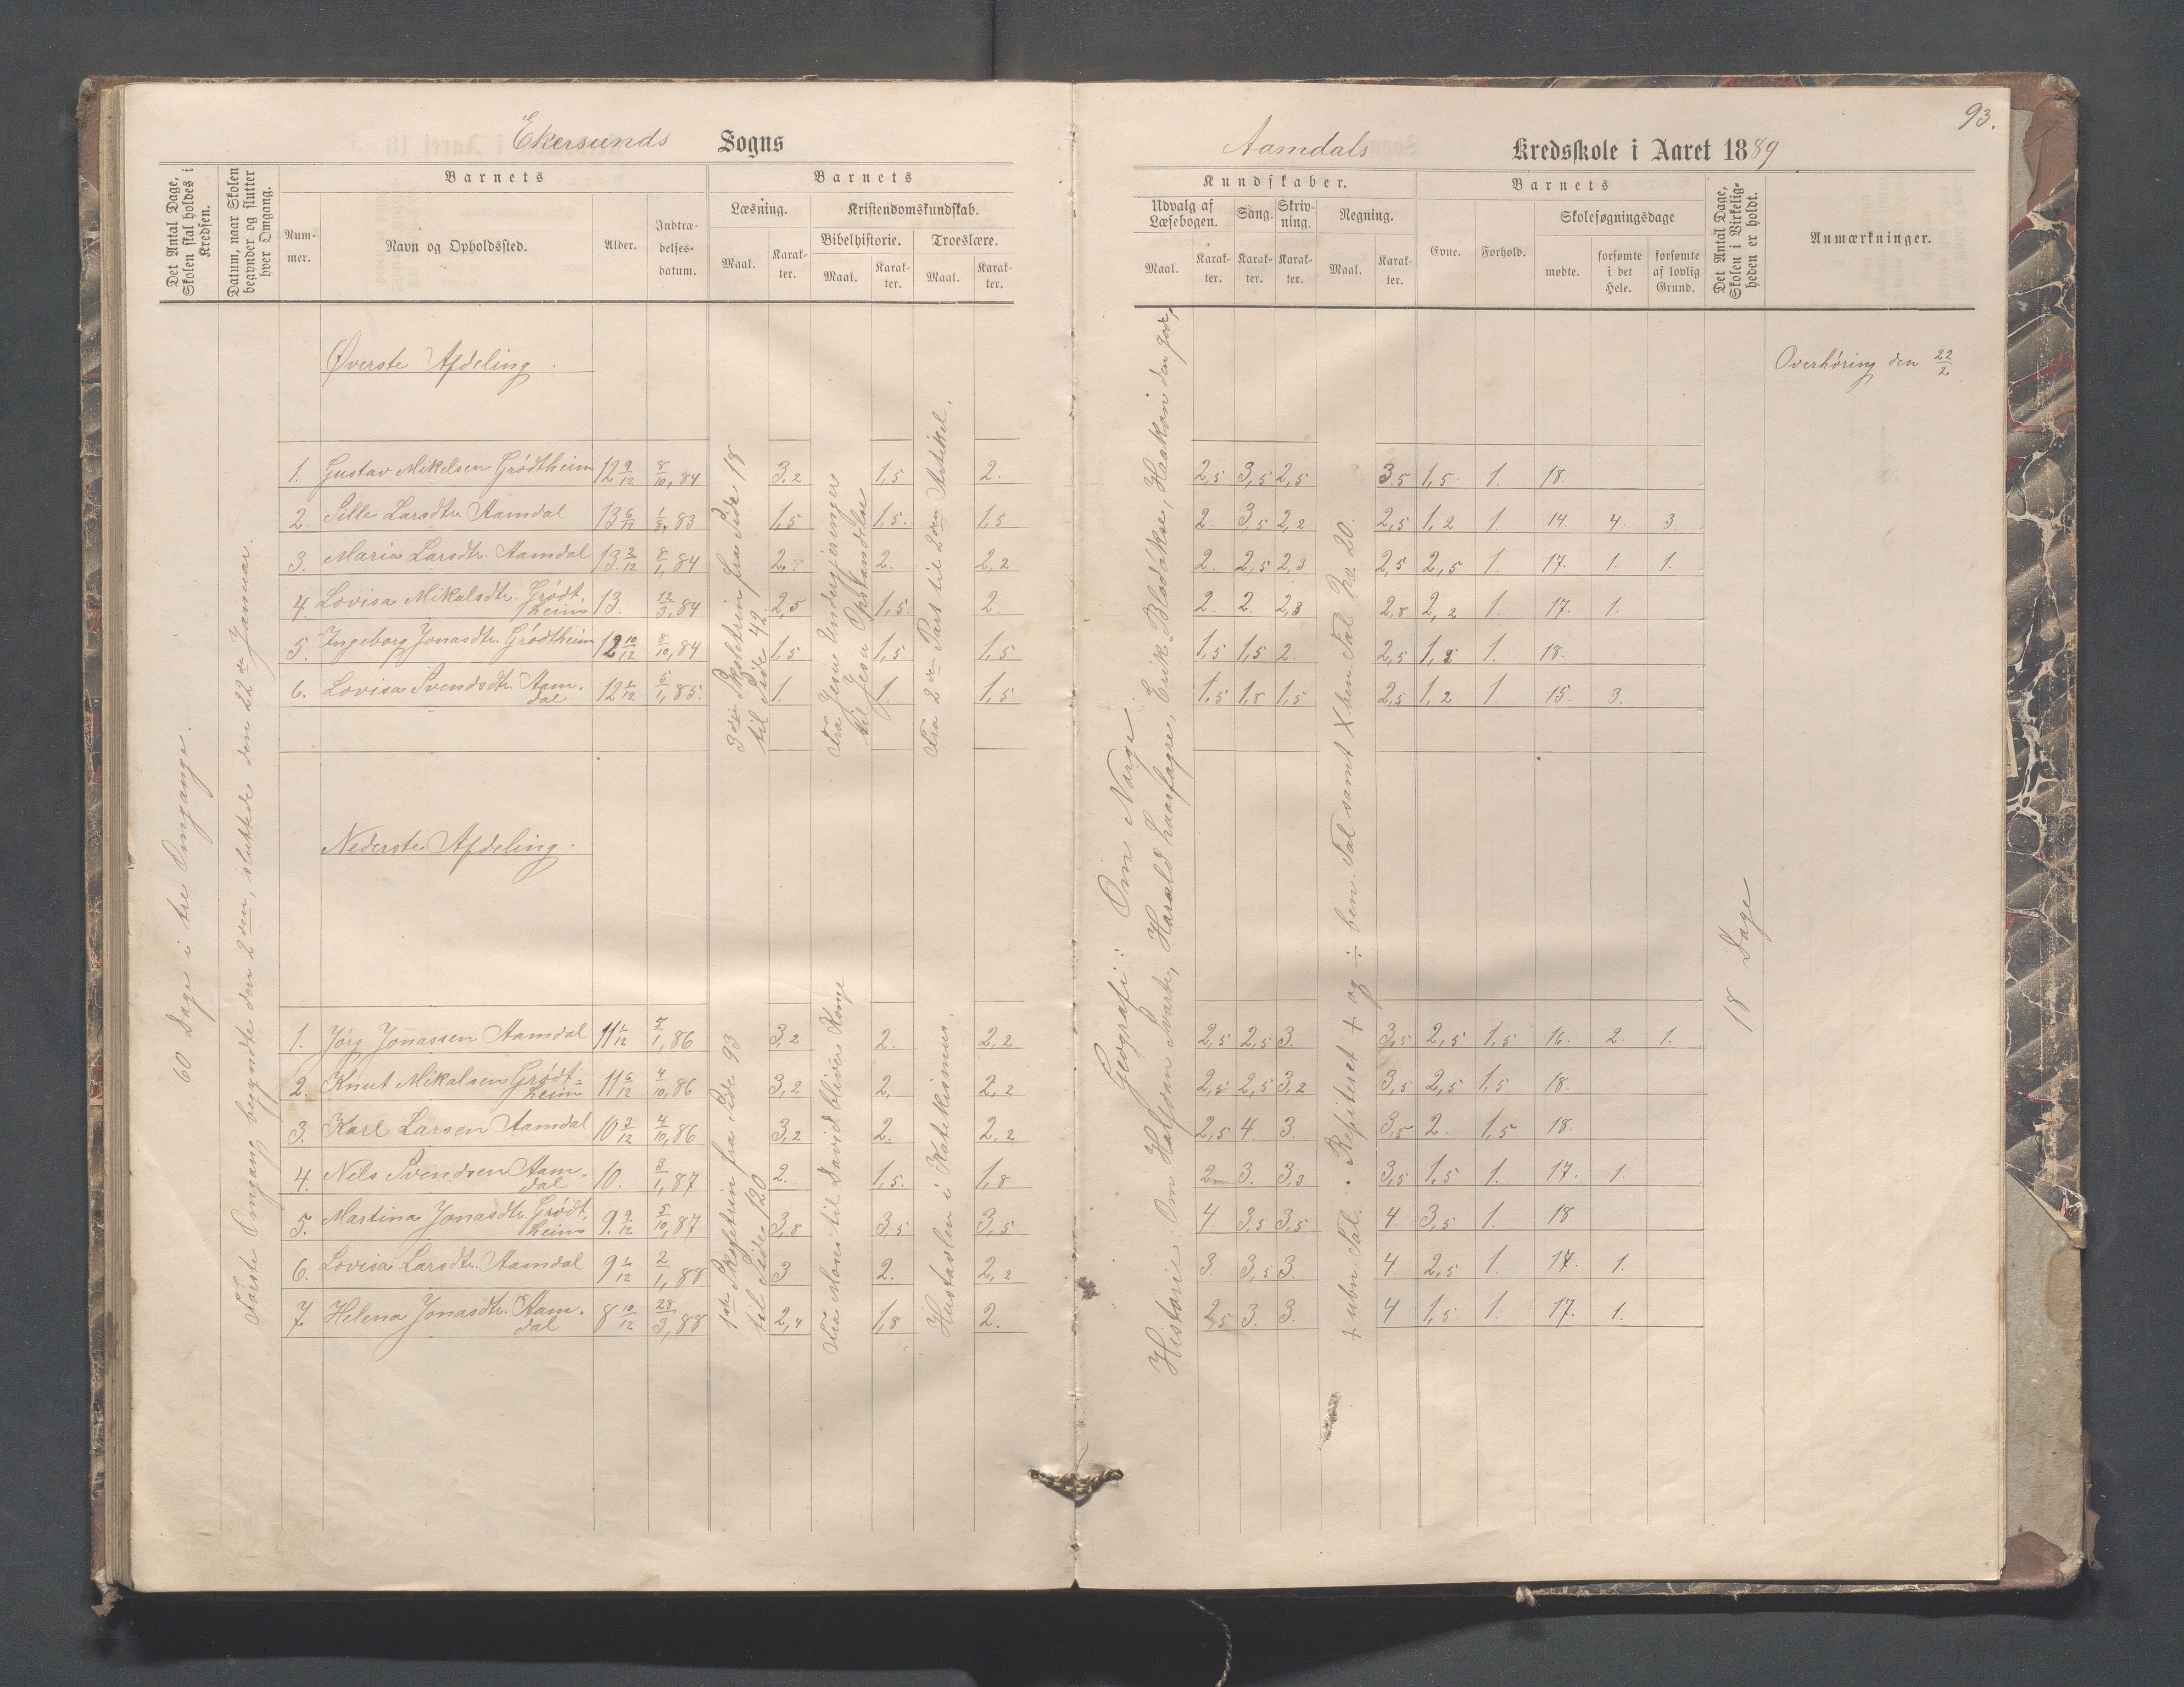 93.
Ekersunds Sogns
Aamdals Kredsskole i Aaret 1889
Det Antal Dage, Skolen skal holdes i Kredsen.
Datum, naar Skolen begynder og slutter hver Omgang.
Barnets
Nummer.
Navn og Opholdssted.
Alder.
Indtrædelsesdatum.
Barnets
Læsning.
Maal.
Karakter.
Kristendomskundskab.
Bibelhistorie.
Maal.
Karakter.
Troeslære.
Maal.
Karakter.
Kundskaber.
Udvalg af Læsebogen.
Maal.
Karakter.
Sang.
Karakter.
Skrivning.
Karakter.
Regning.
Maal.
Karakter.
Barnets
Evne.
Forhold.
Skolesøgningsdage
mødte.
forsømte i det Hele.
forsømte af lovlig Grund.
Det Antal Dage, Skolen i Virkeligheden er holdt.
Anmærkninger.
60 Dage i tre Omgange.
Første Omgang begyndte den 2den, sluttede den 22de Januar.
Øverste Afdeling.
Overhøring den 22/2
1. Gustav Mikelsen Grødtheim 12 9/12 8/10, 84 3,2 1,5 2. 2,5 3,5 2,5 3,5 1,5 1. 18.
2. Sille Larsdtr. Aamdal 13 6/12 83 1,5 1,5. 1,5 2. 3,5 2,2 2,5 1,2 1. 14. 4. 3.
3. Maria Larsdtr. Aamdal 13 2/12 8/1, 84 2,8 2. 2,2 2. 2,5 2,3 2,5 2,5 1. 17. 1. 1.
4. Lovisa Mikalsdtr. Grødtheim 13. 12/3, 84 2,5 1,5. 2. 2. 2. 2,3 2,8 2,2 1. 17. 1.
5. Ingeborg Jonasdtr. Grødtheim 12 10/12 8/10, 84 1,5 1,5 1,5 1,5 1,5 2. 2,5 1,2 1. 18.
6. Lovisa Svendsdtr. Aamdal 12 1/12 5/1, 85. 1. 1. 1,5 1,5 1,8 1,5 2,5 1,2 1. 15. 3.
3die Skoletrin fra Side 18
til Side 42.
Fra Jesu Undergjerninger
til Jesu Opstandelse
Fra 2den Part til 2den Artikel.
Nederste Afdeling.
1. Jørg Jonassen Aamdal 11 1/12 5/1, 86 3,2 2. 2,2 2,5 2,5 3. 3,5 2,5 1,5 16. 2. 1.
2. Knut Mikalsen Grødtheim 11 6/12 4/10, 86 3,2 2, 2,2 2,5 2,5 3,2 3,5 2,5 1,5 18.
3. Karl Larsen Aamdal 10 3/12 4/10, 86 3,2 2. 2,2 2,5 4. 3. 3,5 2. 1,5 18.
4. Nels Svendsen Aamdal 10. 3/1, 87 2. 1,5. 1,8 2. 3. 3,3 3,5 1,5 1. 17. 1.
5. Martina Jonasdtr. Grødtheim 9. 9/12 5/10, 87 3,8 3,5 3,5 4. 3,5 3,5 4. 3,5 1. 18.
6. Lovisa Larsdtr. Aamdal 9 1/12 2/1, 88 3 2. 2,2 3. 3,5 3. 4. 2,5 1. 17. 1.
7. Helena Jonasdtr. Aamdal 8 10/12 28/3, 88 2,4 1,8 2. 2,5 3. 3. 4 1,5 1. 17. 1.
1ste Skoletrin fra Side 93
til Side 120
Fra Moses til David bliver Konge
Hustavlen i Katekismus.
Geografi: Om Norge.
Historie: Om Halfdan Svarte, Harald haarfagre, Erik Blodøkse, Haakon den gode,
Repiteret + og ÷ ben. Tal samt X ben. Tal No 20.
+ ubn. Tal.
18 Dage